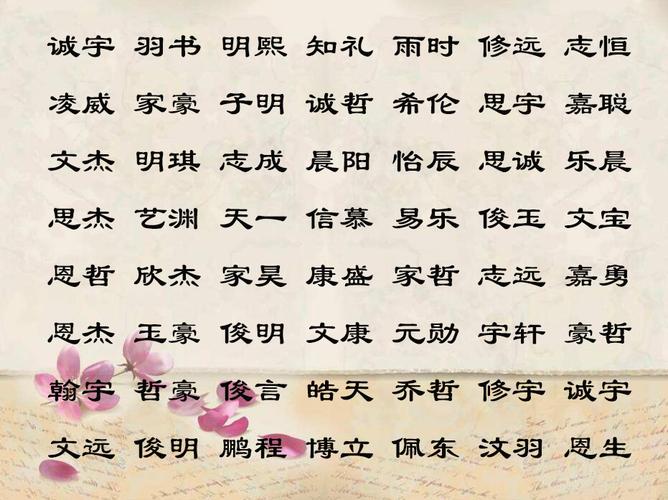 诚宇 羽书 明熙 知礼 雨时 修远 志恒
凌威 家豪 子明 诚哲 希伦 思宇 嘉聪
文杰 明琪 志成 晨阳 怡辰 思诚 乐晨
思杰 艺渊 天一 信慕 易乐 俊玉 文宝
恩哲 欣杰 家昊 康盛 家哲 志远 嘉勇
恩杰 玉豪 俊明 文康 元勋 宇轩 豪哲
翰宇 哲豪 俊言 皓天 乔哲 修宇 诚宇
文远 俊明 鹏程 博立 佩东 汶羽 恩生